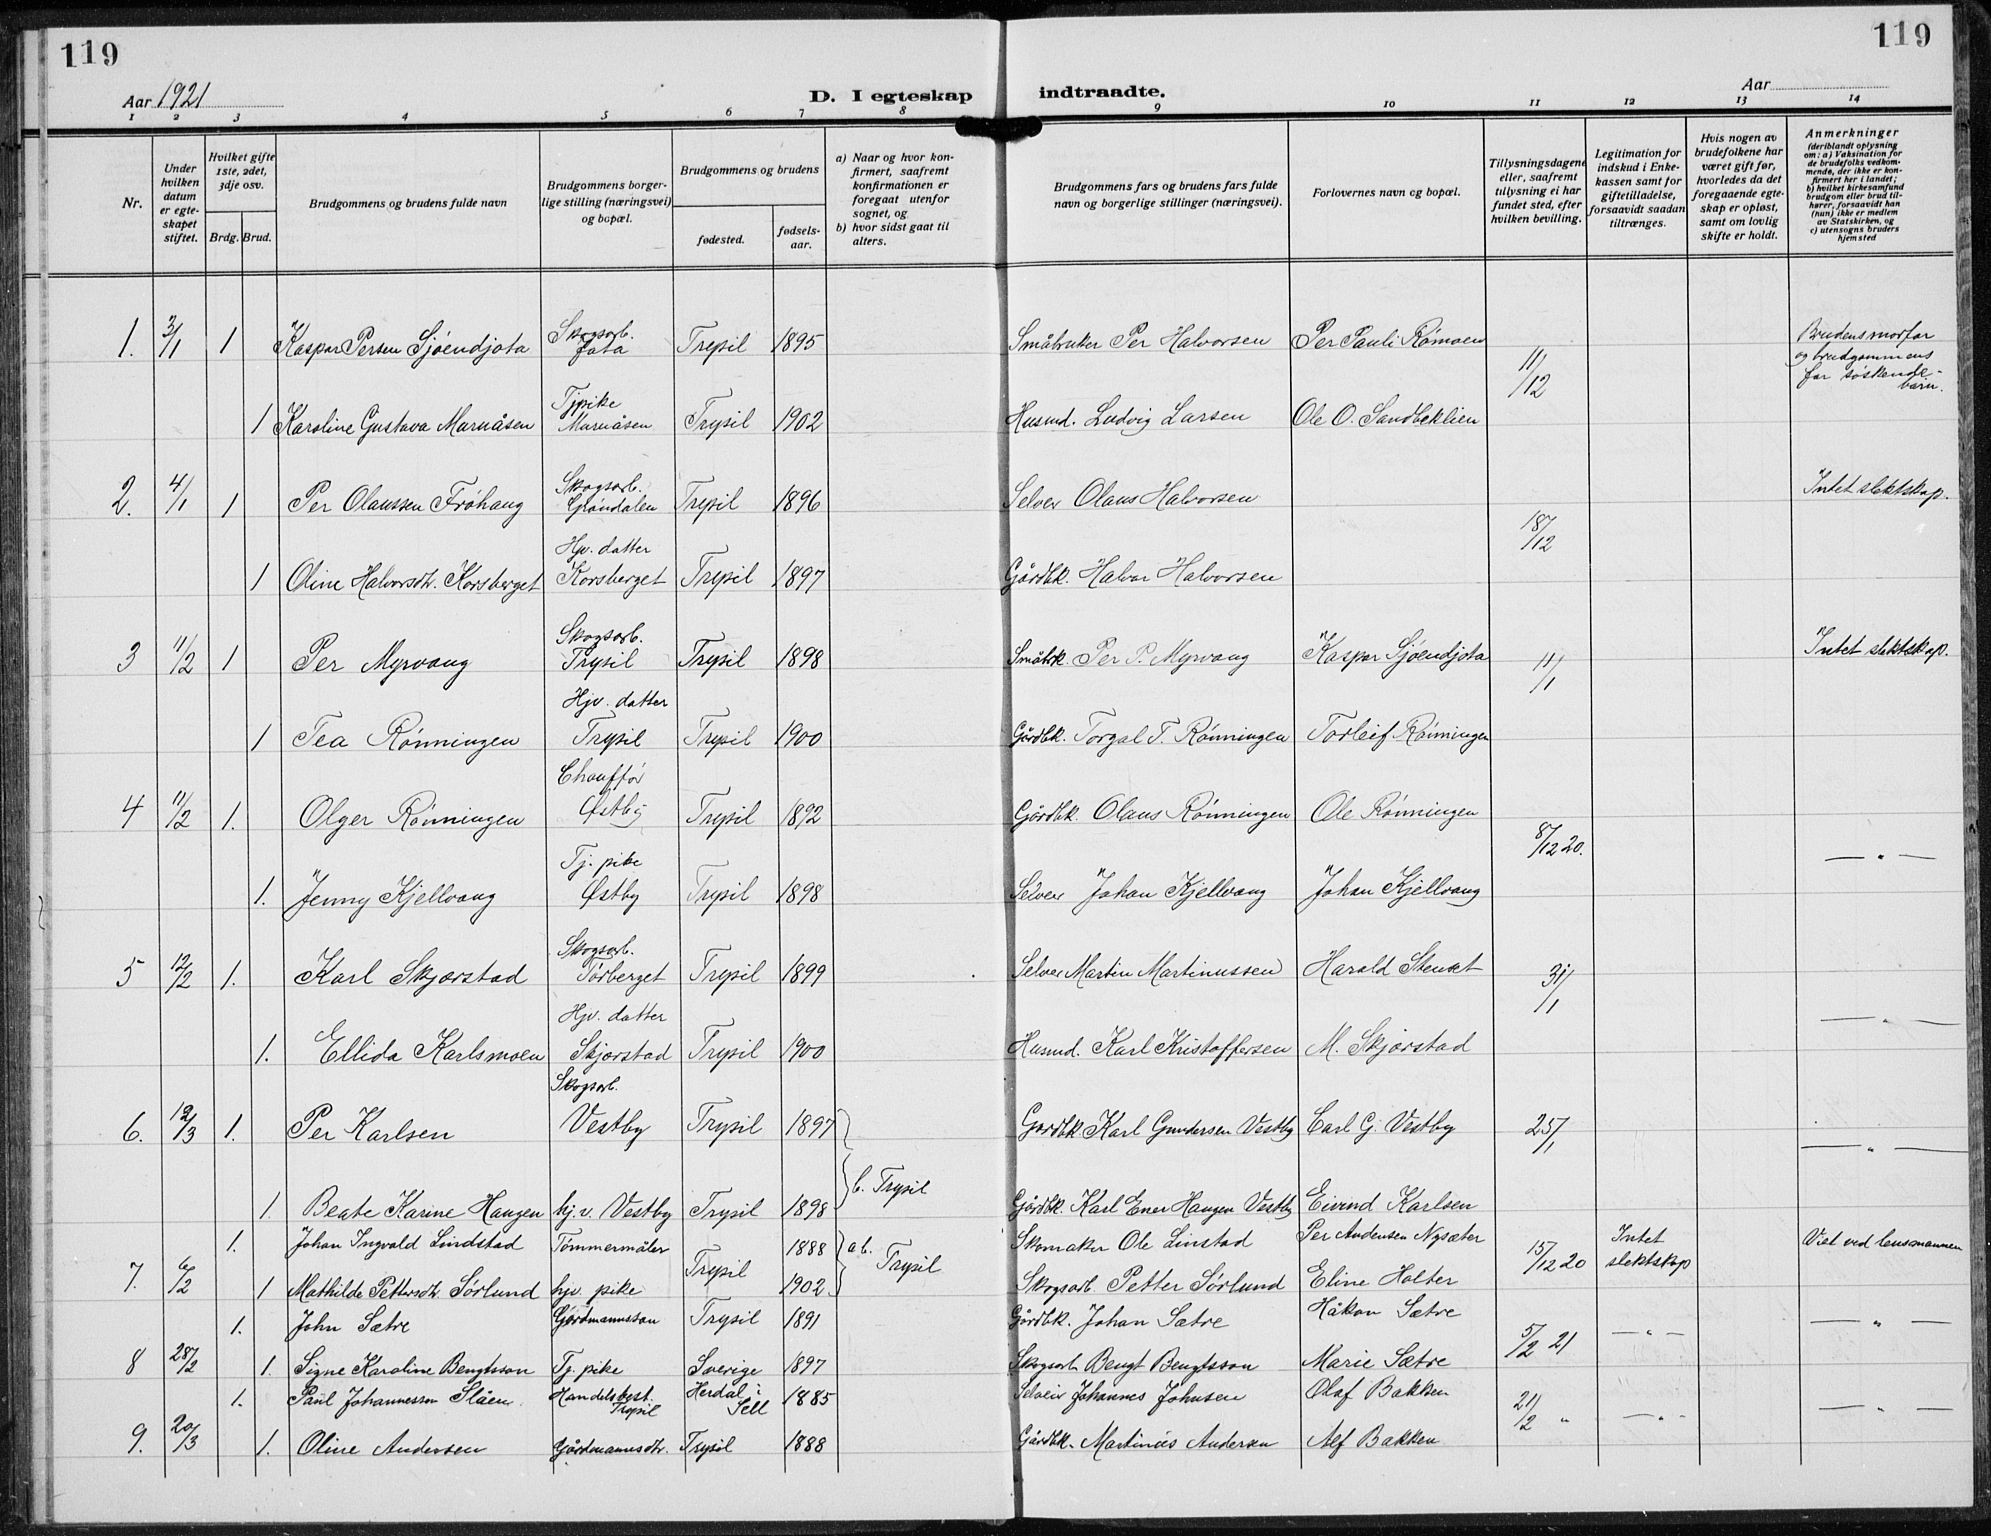 119
119
Aar 1921
D. I egteskap indtraadte.
Aar
1 2 3 4 5 6 7 8 9 10 11 12 13 14
Nr.
Under hvilken datum er egteskapet stiftet.
Hvilket gifte 1ste, 2det, 3dje osv.
Brdg. Brud.
Brudgommens og brudens fulde navn
Brudgommens borgerlige stilling (næringsvei) og bopæl.
Brudgommens og brudens
fødested.
fødselsaar.
a) Naar og hvor konfirmert, saafremt konfirmationen er foregaat utenfor sognet, og
b) hvor sidst gaat til alters.
Brudgommens fars og brudens fars fulde navn og borgerlige stillinger (næringsvei).
Forlovernes navn og bopæl.
Tillysningsdagene eller, saafremt tillysning ei har fundet sted, efter hvilken bevilling.
Legitimation for indskud i Enkekassen samt for giftetilladelse, forsaavidt saadan tiltrænges.
Hvis nogen av brudefolkene har været gift før, hvorledes da det foregaaende egteskap er opløst, samt om lovlig skifte er holdt.
Anmerkninger
(deriblandt oplysning om: a) Vaksination for de brudefolks vedkommende, der ikke er konfirmert her i landet; b) hvilket kirkesamfund brudgom eller brud tilhører, forsaavidt han (hun) ikke er medlem av Statskirken, og c) utensogns bruders hjemsted
1. 3/1 1 Kaspar Persen Sjøendjota Skogsarb. Trysil 1895 Småbruker Per Halvorsen Per Pauli Rømoen 11/12 Brudens morfar og brudgommens far søskendebarn.
1 Karoline Gustava Marnåsen Tjpike Marnåsen Trysil 1902 Husmd. Ludvig Larsen Ole O. Sandbeklien
2. 4/1 1 Per Olaussen Fröhaug Skogsarb. Gröndalen Trysil 1896 Selveier Olaus Halvorsen 18/12 Intet slektskap.
1 Oline Halvorsdtr. Korsberget Hjv. datter Korsberget Trysil 1897 Gårdbk. Halvor Halvorsen
3 11/2 1 Per Myrvang Skogsarb. Trysil Trysil 1898 Småbrk. Per P. Myrvang Kaspar Sjøendjota 11/1 Intet slektskap.
1 Tea Rönningen Hjv. datter Trysil Trysil 1900 Gårdbk. Torgal T. Rönningen Torleif Rönningen
4 11/2 1. Olger Rönningen Chauffør Østby Trysil 1892 Gårdbk. Olaus Rönningen Ole Rönningen 8/12 20. — " —
1. Jenny Kjellvang Tj. pike Østby Trysil 1898 Selveier Johan Kjellvang Johan Kjellvang
5 12/2 1. Karl Skjærstad Skogsarb. Törberget Trysil 1899 Selveier Martin Martinussen Harald Stenset 31/1 — " —
1. Ellida Karlsmoen Hjv. datter Skjærstad Trysil 1900 Husmd. Karl Kristoffersen M. Skjærstad
6. 12/3 1. Per Karlsen Skogsarb. Vestby Trysil 1897 Gardbk Karl Gundersen Vestby Carl G. Vestby 25/1 — " —
1. Beate Karine Haugen hj.v. Vestby Trysil 1898 b. Trysil Gårdbk. Karl Ener Haugen Vestby Eivind Karlsen
7. 6/2 1. Johan Ingvald Lindstad Tömmermåler Trysil 1888 a b. Trysil Skomaker Ole Linstad Per Andersen Nysæter 15/12 20 Intet slektskap Viet ved lensmannen
1 Mathilde Pettersdtr. Sörlund hjv. pike 1902 Skogsarb. Petter Sörlund Eline Holter
8 28/2 1. John Sætre Gårdmannssön Trysil 1891 Gårdbk. Johan Sætre Håkon Sætre 5/2 21 — " — — " —
1. Signe Karoline Bengtsson Tj. pike Sverige 1897 Skogsarb. Bengt Bengtsson Marie Sætre
9. 20/3 1. Paul Johannessen Slåen Handelsbest. Trysil Herdal i Sell 1885 Selveier Johannes Johnsen Olaf Bakken 21/2 " — " — — " —
1. Oline Andersen Gårdmannsdtr. Trysil 1888 Gårdbk. Martinus Andersen Alf Bakken